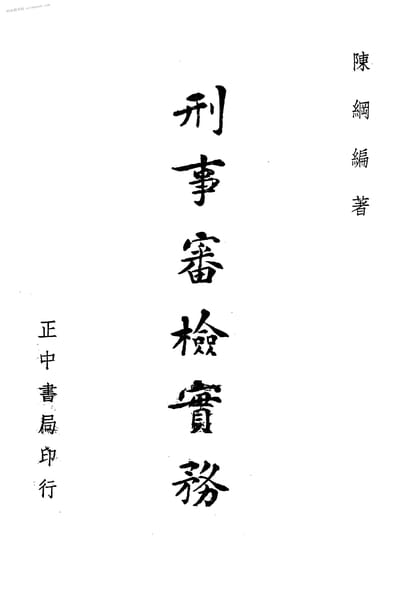 陳綱編著
刑事審檢實務
正中書局印行